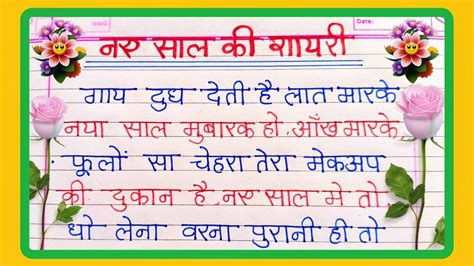 Date:
नए साल की शायरी
गाय दुध देती है लात मारके
नया साल मुबारक हो. आँख मारके,
फूलों सा चेहरा तेरा मेकअप
की दुकान है, नए साल मे तो,
धो लेना वरना पुरानी ही तो